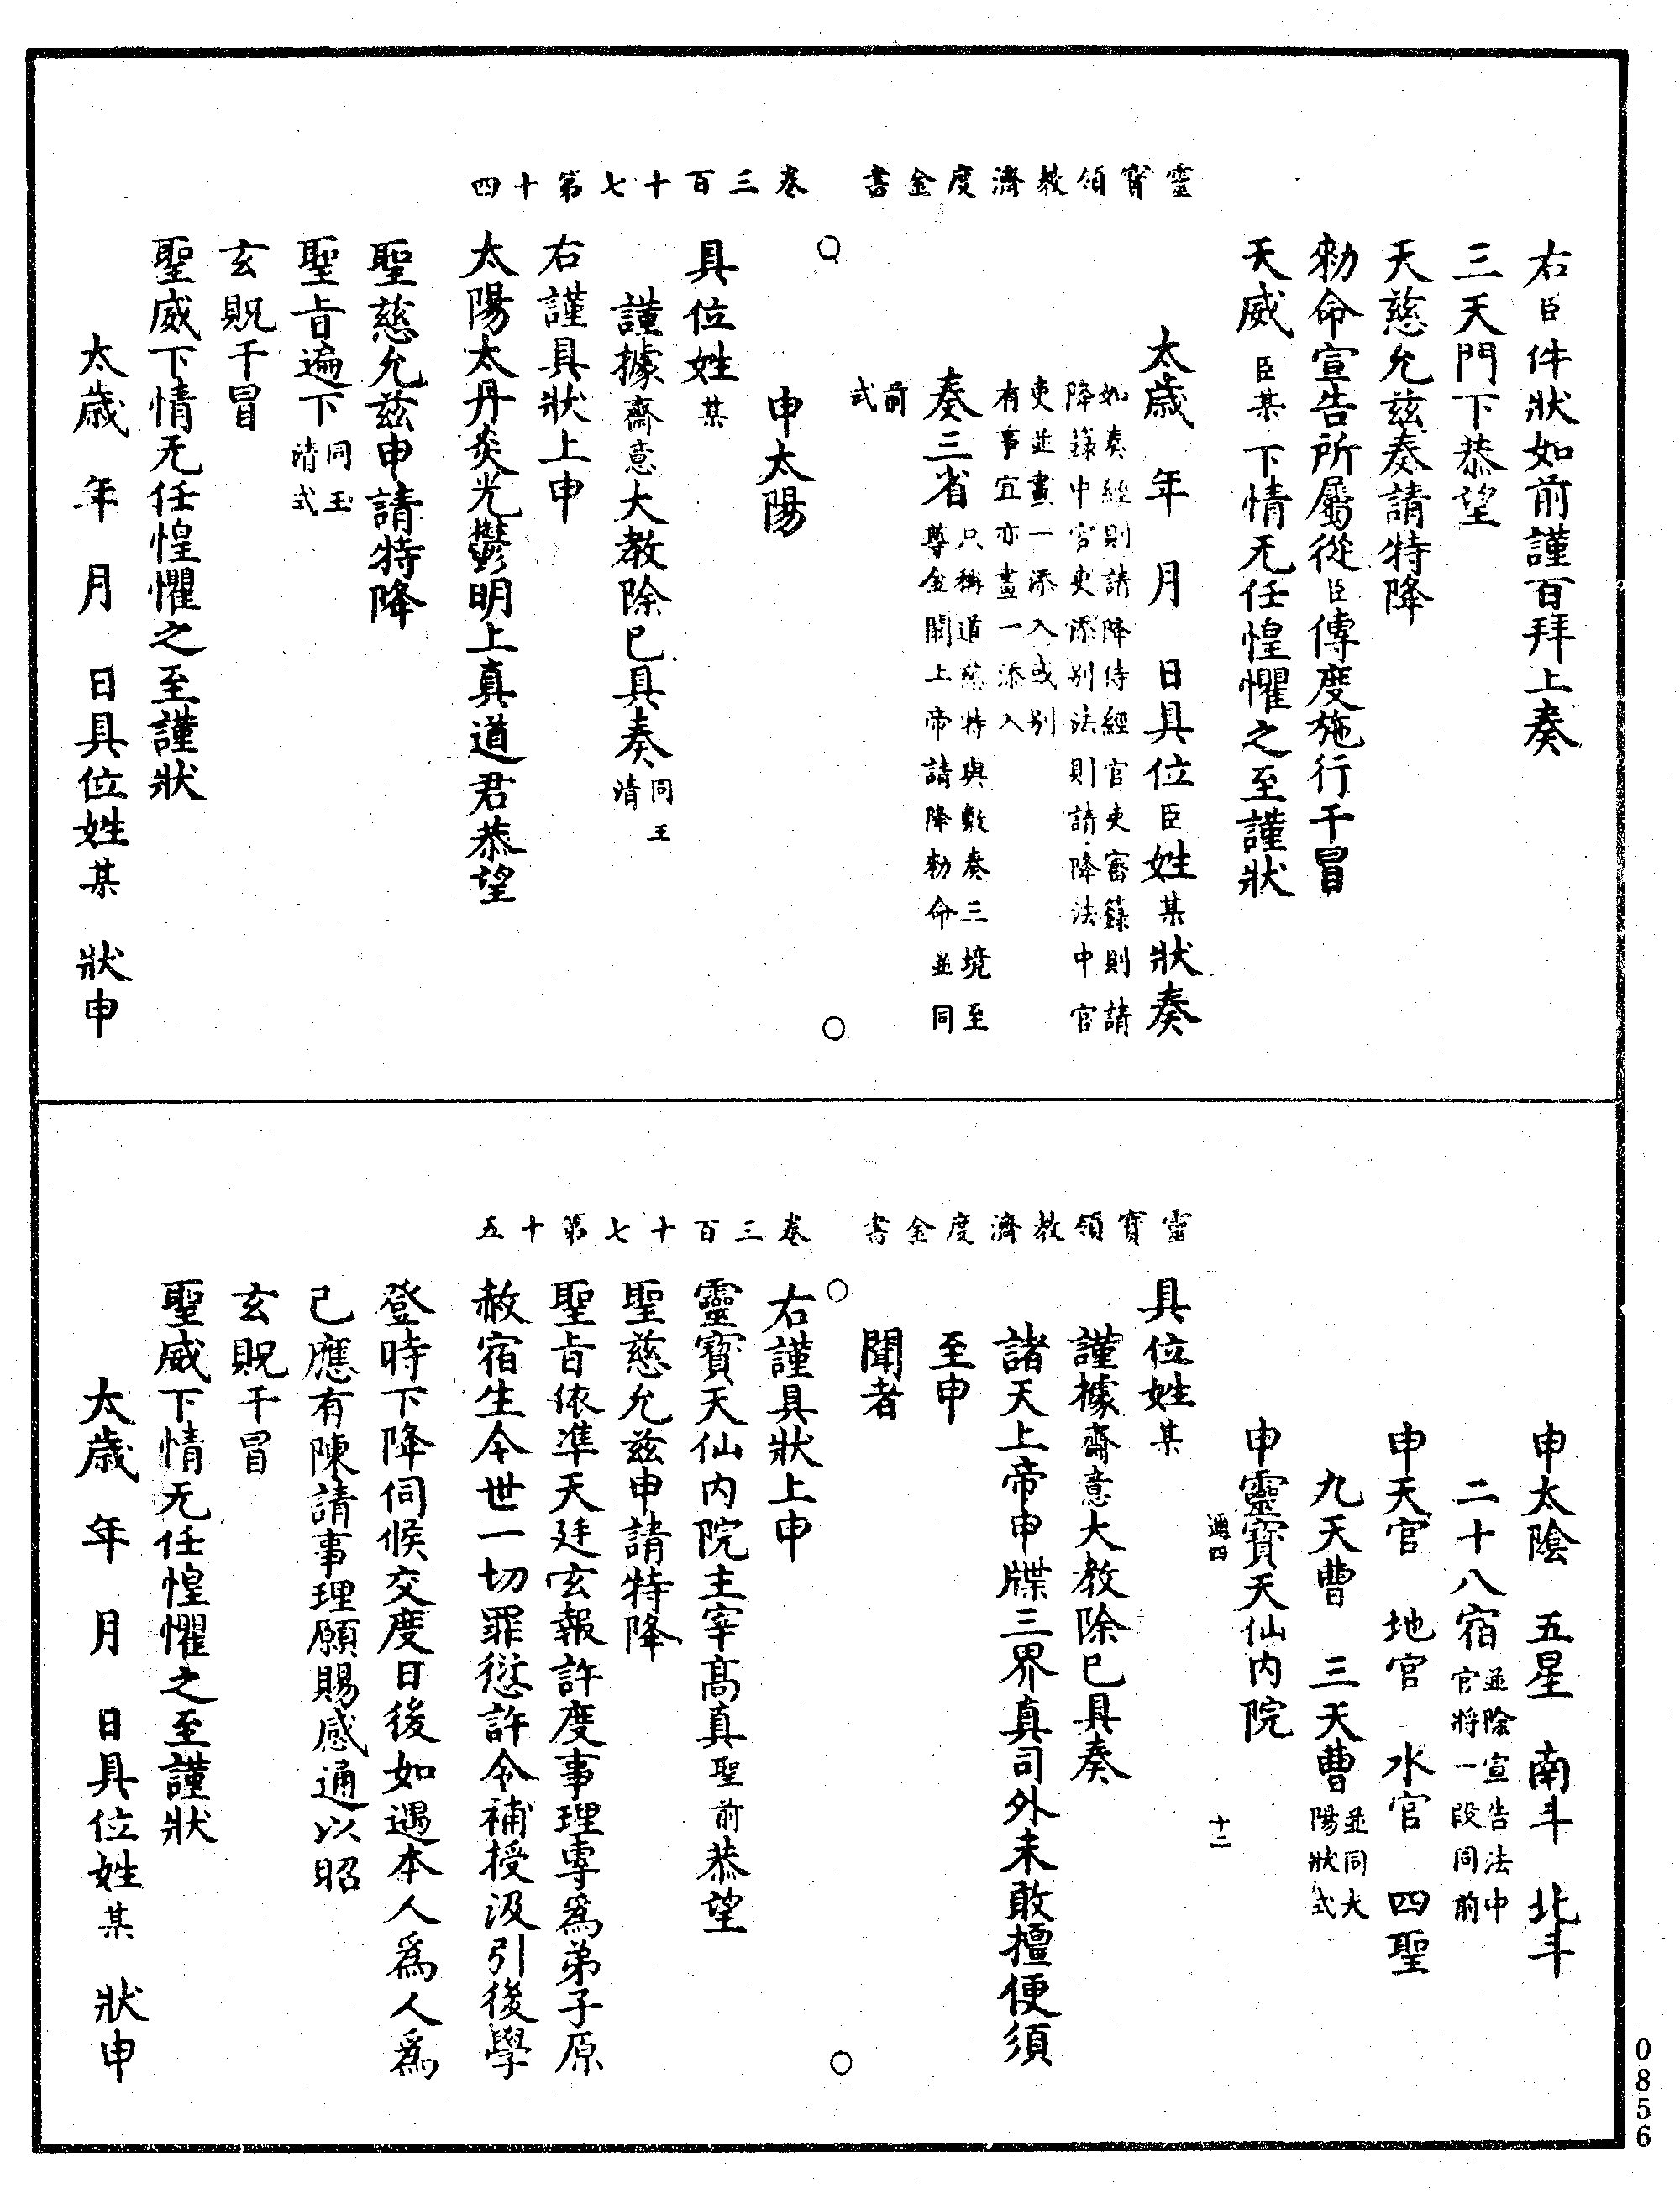 靈寶領教濟度金書 卷三百十七第十四
右臣件狀如前謹百拜上奏
三天門下恭望
天慈允茲奏請特降
勑命宣告所屬從臣傳度施行干冒
天威臣某下情无任惶懼之至謹狀
太歲 年 月 日具位臣姓某狀奏
如奏經則請降侍經官吏審籙則請
降籙中官吏添別法則請降法中官
吏並畫一添入或別
有事宜亦畫一添入
奏三省只稱道慈特與敷奏三境至
尊金闕上帝請降勑命並同
前
式
申太陽
具位姓某
謹據齋意大教除已具奏同玉
清
右謹具狀上申
太陽太丹炎光鬱明上真道君恭望
聖慈允茲申請特降
聖旨遍下同玉
清式
玄貺干冒
聖威下情无任惶懼之至謹狀
太歲 年 月 日具位姓某 狀申
靈寶領教濟度金書 卷三百十七第十五
申太陰 五星 南斗 北斗
二十八宿並除宣告法中
官將一段同前
申天官 地官 水官 四聖
九天曹 三天曹並同太
陽狀式
通四 十二
申靈寶天仙內院
具位姓某
謹據齋意大教除已具奏
諸天上帝申牒三界真司外未敢擅便須
至申
聞者
右謹具狀上申
靈寶天仙內院主宰高真聖前恭望
聖慈允茲申請特降
聖旨依準天廷玄報許度事理專為弟子原
赦宿生今世一切罪愆許令補授汲引後學
登時下降伺候交度日後如遇本人為人為
己應有陳請事理願賜感通以昭
玄貺干冒
聖威下情无任惶懼之至謹狀
太歲 年 月 日具位姓某 狀申
0856